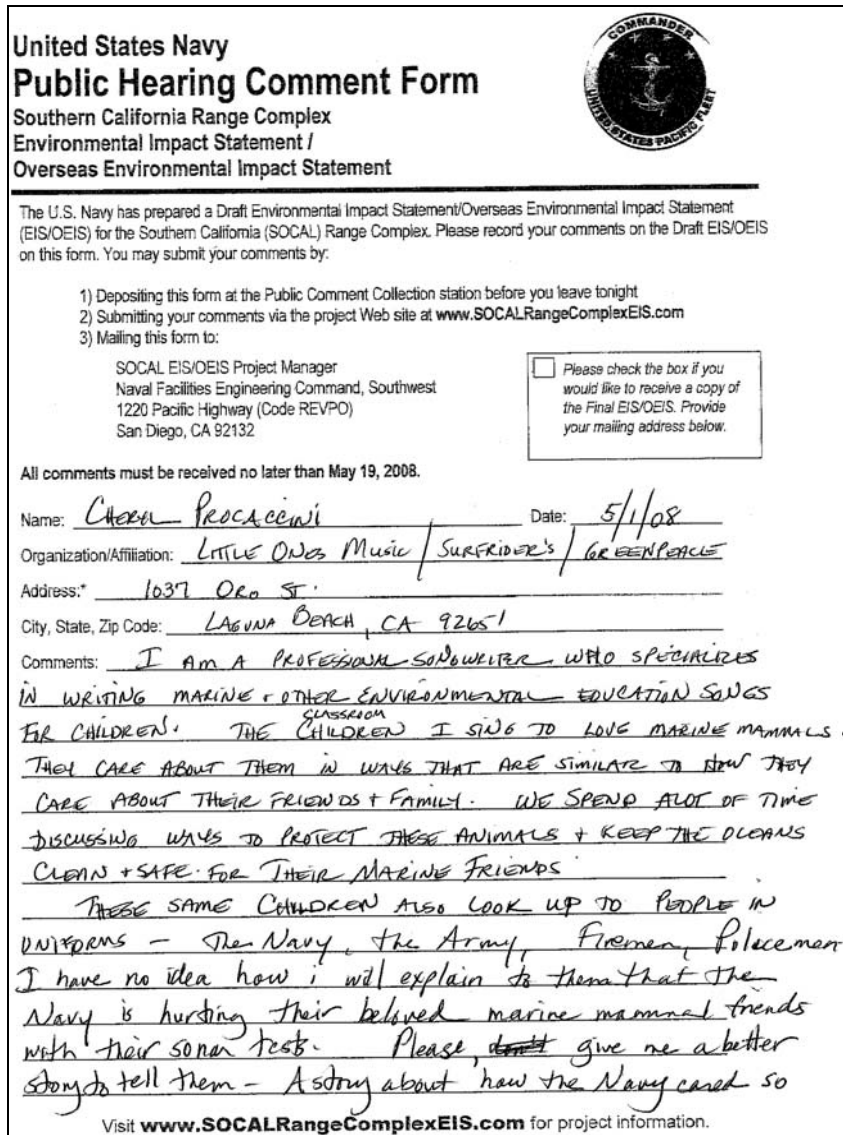 United States Navy
Public Hearing Comment Form
Southern California Range Complex
Environmental Impact Statement /
Overseas Environmental Impact Statement
COMMANDER
UNITED STATES PACIFIC FLEET
The U.S. Navy has prepared a Draft Environmental Impact Statement/Overseas Environmental Impact Statement
(EIS/OEIS) for the Southern California (SOCAL) Range Complex. Please record your comments on the Draft EIS/OEIS
on this form. You may submit your comments by:
1) Depositing this form at the Public Comment Collection station before you leave tonight
2) Submitting your comments via the project Web site at www.SOCALRangeComplexEIS.com
3) Mailing this form to:
SOCAL EIS/OEIS Project Manager
Naval Facilities Engineering Command, Southwest
1220 Pacific Highway (Code REVPO)
San Diego, CA 92132
Please check the box if you
would like to receive a copy of
the Final EIS/OEIS. Provide
your mailing address below.
All comments must be received no later than May 19, 2008.
Name: CHERYL PROCACCINI Date: 5/1/08
Organization/Affiliation: LITTLE ONES MUSIC / SURFRIDER'S / GREENPEACE
Address:* 1037 ORO ST.
City, State, Zip Code: LAGUNA BEACH, CA 92651
Comments: I AM A PROFESSIONAL SONGWRITER WHO SPECIALIZES
IN WRITING MARINE + OTHER ENVIRONMENTAL EDUCATION SONGS
FOR CHILDREN. THE CLASSROOM CHILDREN I SING TO LOVE MARINE MAMMALS.
THEY CARE ABOUT THEM IN WAYS THAT ARE SIMILAR TO HOW THEY
CARE ABOUT THEIR FRIENDS + FAMILY. WE SPEND ALOT OF TIME
DISCUSSING WAYS TO PROTECT THESE ANIMALS + KEEP THE OCEANS
CLEAN + SAFE FOR THEIR MARINE FRIENDS
THESE SAME CHILDREN ALSO LOOK UP TO PEOPLE IN
UNIFORMS - The Navy, the Army, Firemen, Policemen
I have no idea how i will explain to them that the
Navy is hurting their beloved marine mammal friends
with their sonar tests. Please, don't give me a better
story to tell them - A story about how the Navy cared so
Visit www.SOCALRangeComplexEIS.com for project information.